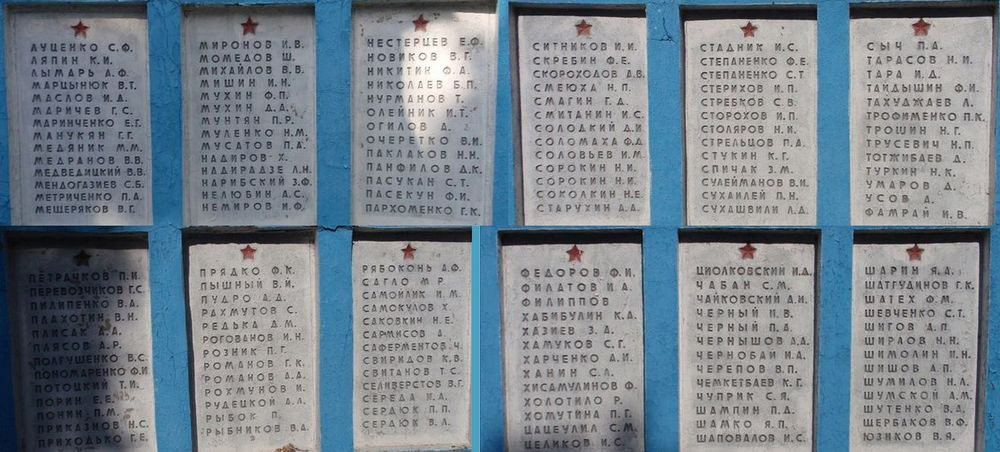 ЛУЦЕНКО С.Ф.
ЛЯПИН К.И.
ЛЫМАРЬ А.Ф.
МАРЦЫНЮК В.Т.
МАСЛОВ И.Д.
МАРИЧЕВ Г.С.
МАРИНЧЕНКО Е.Г.
МАНУКЯН Г.Г.
МЕДЯНИК М.М.
МЕДРАНОВ В.В.
МЕДВЕДИЦКИЙ В.В.
МЕНДОГАЗИЕВ С.Б.
МЕТРИЧЕНКО П.А.
МЕЩЕРЯКОВ В.Г.
МИРОНОВ И.В.
МОМЕДОВ Ш.
МИХАЙЛОВ В.В.
МИШИН И.Н.
МУХИН Ф.П.
МУХИН Д.А.
МУНТЯН П.Р.
МУЛЕНКО Н.М.
МУСАТОВ П.А.
НАДИРОВ Х.
НАДИРАДЗЕ Л.Н.
НАРИБСКИЙ З.Ф.
НЕЛЮБИН А.С.
НЕМИРОВ И.Ф.
НЕСТЕРЦЕВ Е.Ф.
НОВИКОВ В.Г.
НИКИТИН Ф.А.
НИКОЛАЕВ Б.П.
НУРМАНОВ Т.
ОЛЕЙНИК И.Т.
ОГИЛОВ Д.
ОЧЕРЕТКО В.И.
ПАКЛАКОВ Н.Н.
ПАНФИЛОВ Д.К.
ПАСУКАН С.Т.
ПАСЕКУН Ф.И.
ПАРХОМЕНКО Г.К.
СИТНИКОВ И.И.
СКРЕБИН Ф.Е.
СКОРОХОДОВ А.В.
СМЕЮХА Н.П.
СМАГИН Г.Д.
СМИТАНИН И.С.
СОЛОДКИЙ Д.И.
СОЛОМАХА Ф.Д.
СОЛОВЬЕВ И.М.
СОРОКИН Н.И.
СОРОКИН Н.И.
СОКОЛКИН Н.Е.
СТАРУХИН Д.А.
СТАДНИК И.С.
СТЕПАНЕНКО Ф.Е.
СТЕПАНЕНКО С.Т.
СТЕРИХОВ И.П.
СТРЕБКОВ С.В.
СТОРОХОВ И.П.
СТОЛЯРОВ Н.И.
СТРЕЛЬЦОВ П.А.
СТУКИН К.Г.
СПИЧАК З.М.
СУЛЕЙМАНОВ В.И.
СУХАИЛЕЙ П.Н.
СУХАШВИЛИ Л.Д.
СЫЧ П.А.
ТАРАСОВ Н.И.
ТАРА И.Д.
ТАЙДЫШИН Ф.И.
ТАХУДЖАЕВ Л.
ТРОФИМЕНКО П.К.
ТРОШИН Н.Г.
ТРУСЕВИЧ Н.П.
ТОТЖИБАЕВ Д.
ТУРКИН Н.К.
УМАРОВ Д.
УСОВ Д.
ФАМРАЙ И.В.
ПЕТРАЧКОВ П.И.
ПЕРЕВОЗЧИКОВ Г.С.
ПИЛИПЕНКО В.А.
ПЛАХОТИН В.Н.
ПЛИСАК А.А.
ПЛЯСОВ А.Р.
ПОЛГУШЕНКО В.С.
ПОНОМАРЕНКО Ф.И.
ПОТОЦКИЙ Т.И.
ПОРИН Е.Е.
ПОНИН П.М.
ПРИКАЗНОВ Н.С.
ПРИХОДЬКО Г.Е.
ПРЯДКО Ф.К.
ПЫШНЫЙ В.И.
ПУДРО А.Д.
РАХМУТОВ С.
РЕДЬКА Д.М.
РОГОВАНОВ И.Н.
РОЗНИК П.Г.
РОМАНОВ Г.К.
РОМАНОВ А.Д.
РОХМУНОВ И.
РУДЕЦКОЙ Д.Л.
РЫБОК П.
РЫБНИКОВ В.А.
РЯБОКОНЬ А.Ф.
САГЛО М.Р.
САМОЙЛИК И.М.
САМОКУЛОВ Х.
САКОВКИН Н.Е.
САРМИСОВ А.
САФЕРМЕНТОВ Ч.
СВИРИДОВ К.В.
СВИТАНОВ Т.С.
СЕЛИВЕРСТОВ В.Г.
СЕРЕДА И.А.
СЕРДЮК П.П.
СЕРДЮК В.Л.
ФЕДОРОВ Ф.И.
ФИЛАТОВ И.А.
ФИЛИППОВ
ХАБИБУЛИН К.А.
ХАЗИЕВ З.А.
ХАМУКОВ С.Г.
ХАРЧЕНКО А.И.
ХАНИН С.Л.
ХИСАМУЛИНОВ Ф.
ХОЛОТИЛО Р.
ХОМУТИНА П.Г.
ЦАЦЕУЛИЛ С.М.
ЦЕЛИКОВ И.С.
ЦИОЛКОВСКИЙ И.Д.
ЧАБАН С.М.
ЧАЙКОВСКИЙ Д.И.
ЧЕРНЫЙ Н.В.
ЧЕРНЫЙ П.А.
ЧЕРНЫШОВ А.А.
ЧЕРНОБАЙ И.А.
ЧЕРЕПОВ В.П.
ЧЕМКЕТБАЕВ К.Г.
ЧУПРИК С.Я.
ШАМПИН П.Д.
ШАМКО Я.П.
ШАПОВАЛОВ И.С.
ШАРИН Я.А.
ШАТГУДИНОВ Г.К.
ШАТЕХ Ф.М.
ШЕВЧЕНКО С.Т.
ШИГОВ А.П.
ШИРЛОВ Н.Н.
ШИМОЛИН И.Н.
ШИШОВ А.П.
ШУМИЛОВ Н.Л.
ШУМСКОЙ А.М.
ШУТЕНКО В.А.
ЩЕРБАКОВ В.Ф.
ЮЗИКОВ В.Я.